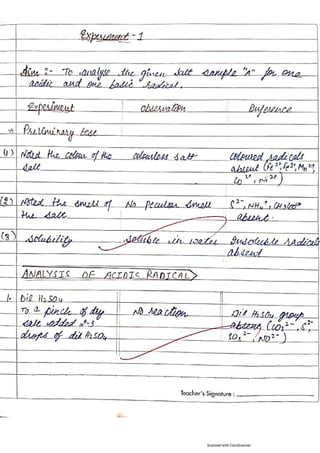 Experiment - 1
Aim :- To analyse the given salt sample "A" for one
acidic and one basic radical.
Experiment observation Inference
→ Preliminary test
(1) Noted the colour of the salt colourless salt coloured radicals absent (Fe2+, Fe3+, Mn2+, Co2+, Ni2+)
(2) Noted the smell of the salt No peculiar smell S2-, NH4+, CH3COO- absent.
(3) Solubility Soluble in water Insoluble radicals absent
ANALYSIS OF ACIDIC RADICAL
1. Dil H2SO4
To a pinch of dry salt added 2-3 drops of dil H2SO4 No reaction Dil H2SO4 group absent (CO32-, S2-, SO32-, NO2-)
Teacher's Signature :
Scanned with CamScanner